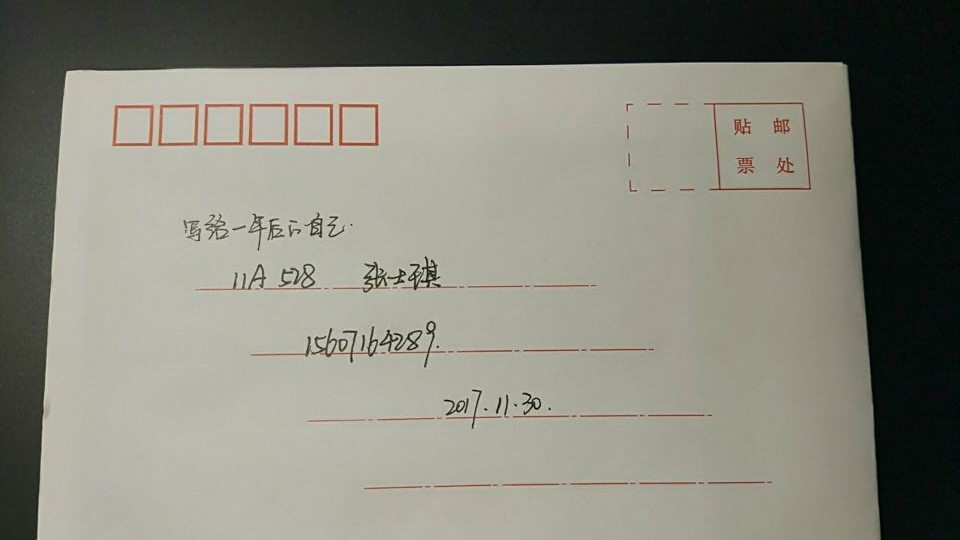 贴 邮
票 处
写给一年后的自己.
11A 528 张士琪
15607164289.
2017.11.30.